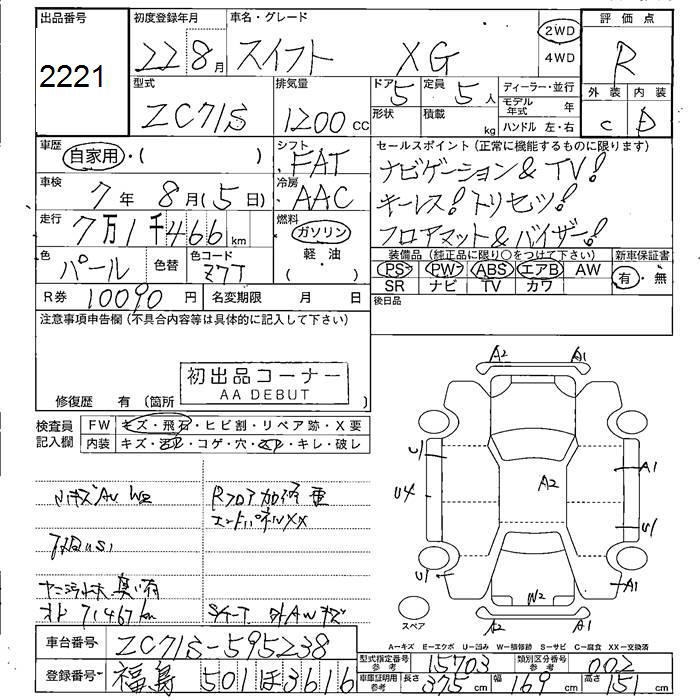 出品番号
2221
初度登録年月
22 8月
車名・グレード
スイフト XG
2WD
4WD
評価点
R
外装 内装
C D
型式
ZC71S
排気量
1200 cc
ドア 5
形状
定員 5 人
積載 kg
ディーラー・並行
モデル年式 年
ハンドル 左・右
車歴
自家用・( )
シフト
FAT
車検
7年 8月(5日)
冷房
AAC
セールスポイント(正常に機能するものに限ります)
ナビゲーション & TV!
キーレス!トリセツ!
フロアマット & バイザー!
走行
7万1千466 km
燃料
ガソリン
軽・油
( )
色
パール
色替
色コード
Z7T
装備品(純正品に限り○をつけて下さい)
PS PW ABS エアB AW
SR ナビ TV カワ
新車保証書
有・無
R券 10090 円
名変期限 月 日
後日品
注意事項申告欄(不具合内容等は具体的に記入して下さい)
初出品コーナー
AA DEBUT
修復歴 有(箇所
検査員記入欄
FW キズ・飛石・ヒビ割・リペア跡・X要
内装 キズ・汚レ・コゲ・穴・スレ・キレ・破レ
Rフロア加修 重
エンドパネルXX
オド 71467km
A2 A1
U1
U4
A2
A1
U1
U1
A1
W2
A2 A1
スペア
A-キズ E-エクボ U-凹み W-補修跡 S-サビ C-腐食 XX-交換済
車台番号 ZC71S-595238
登録番号 福島 501 ほ 3616
型式指定番号 参考 15703
類別区分番号 参考 002
車庫証明用 参考 長さ 375 cm 幅 169 cm 高さ 151 cm